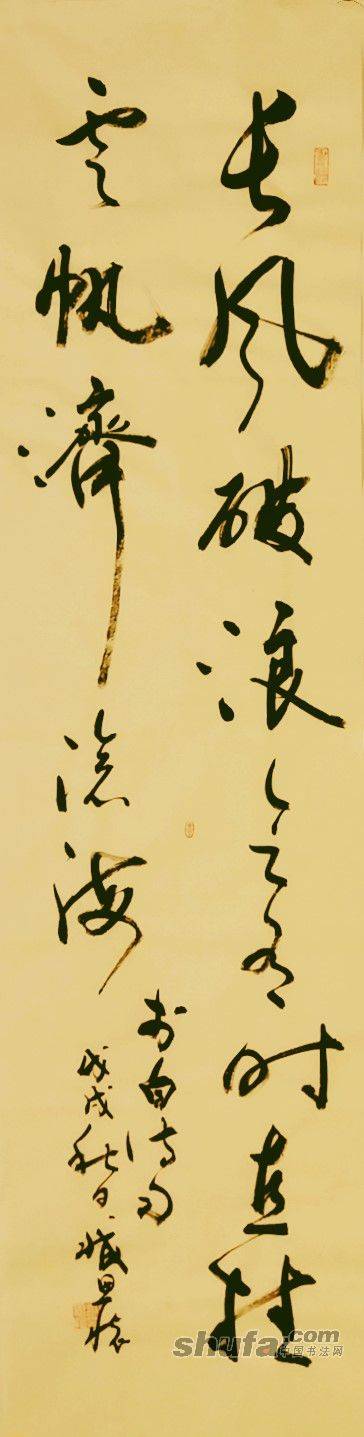 长风破浪会有时直挂
雲帆濟沧海
李白诗句
戊戌秋日
shufa.com
中国书法网